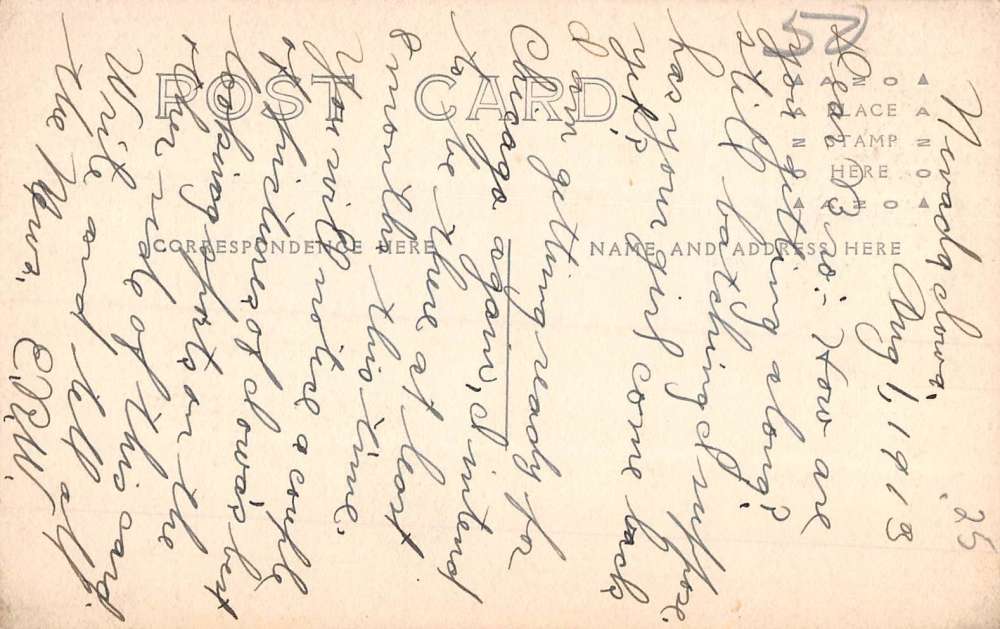 POST CARD
CORRESPONDENCE HERE
NAME AND ADDRESS HERE
ANO
PLACE
STAMP
HERE
ANO
52
25
Nevada, Iowa,
Aug 1, 1913
Dear Bro:- How are
you getting along?
still batching I suppose.
has your girl come back
yet?
I am getting ready for
Chicago again, I intend
to be there at least
8 months this time.
You will notice a couple
of pictures of Iowa's best
looking sports on the
other side of this card
Write and tell all
the News.
E.R.W.